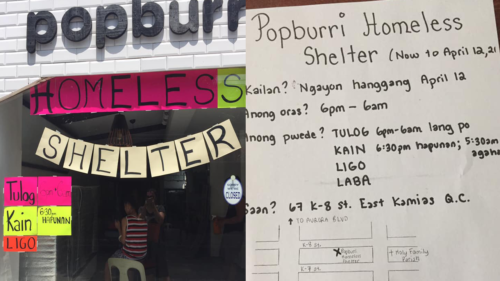 popburri
HOMELESS
SHELTER
Tulog
Kain
6:30pm
HAPUNAN
LIGO
CLOSED
Popburri Homeless
Shelter (Now to April 12, 21
Kailan? Ngayon hanggang April 12
Anong oras? 6pm - 6am
Anong pwede? TULOG 6pm-6am lang po
KAIN 6:30pm hapunan; 5:30am
agaha
LIGO
LABA
Saan? 67 K-8 St. East Kamias Q.C.
↑ TO AURORA BLVD
K-8 St.
X Popburri
Homeless
Shelter
+ Holy Family
Parish
K-7 St.